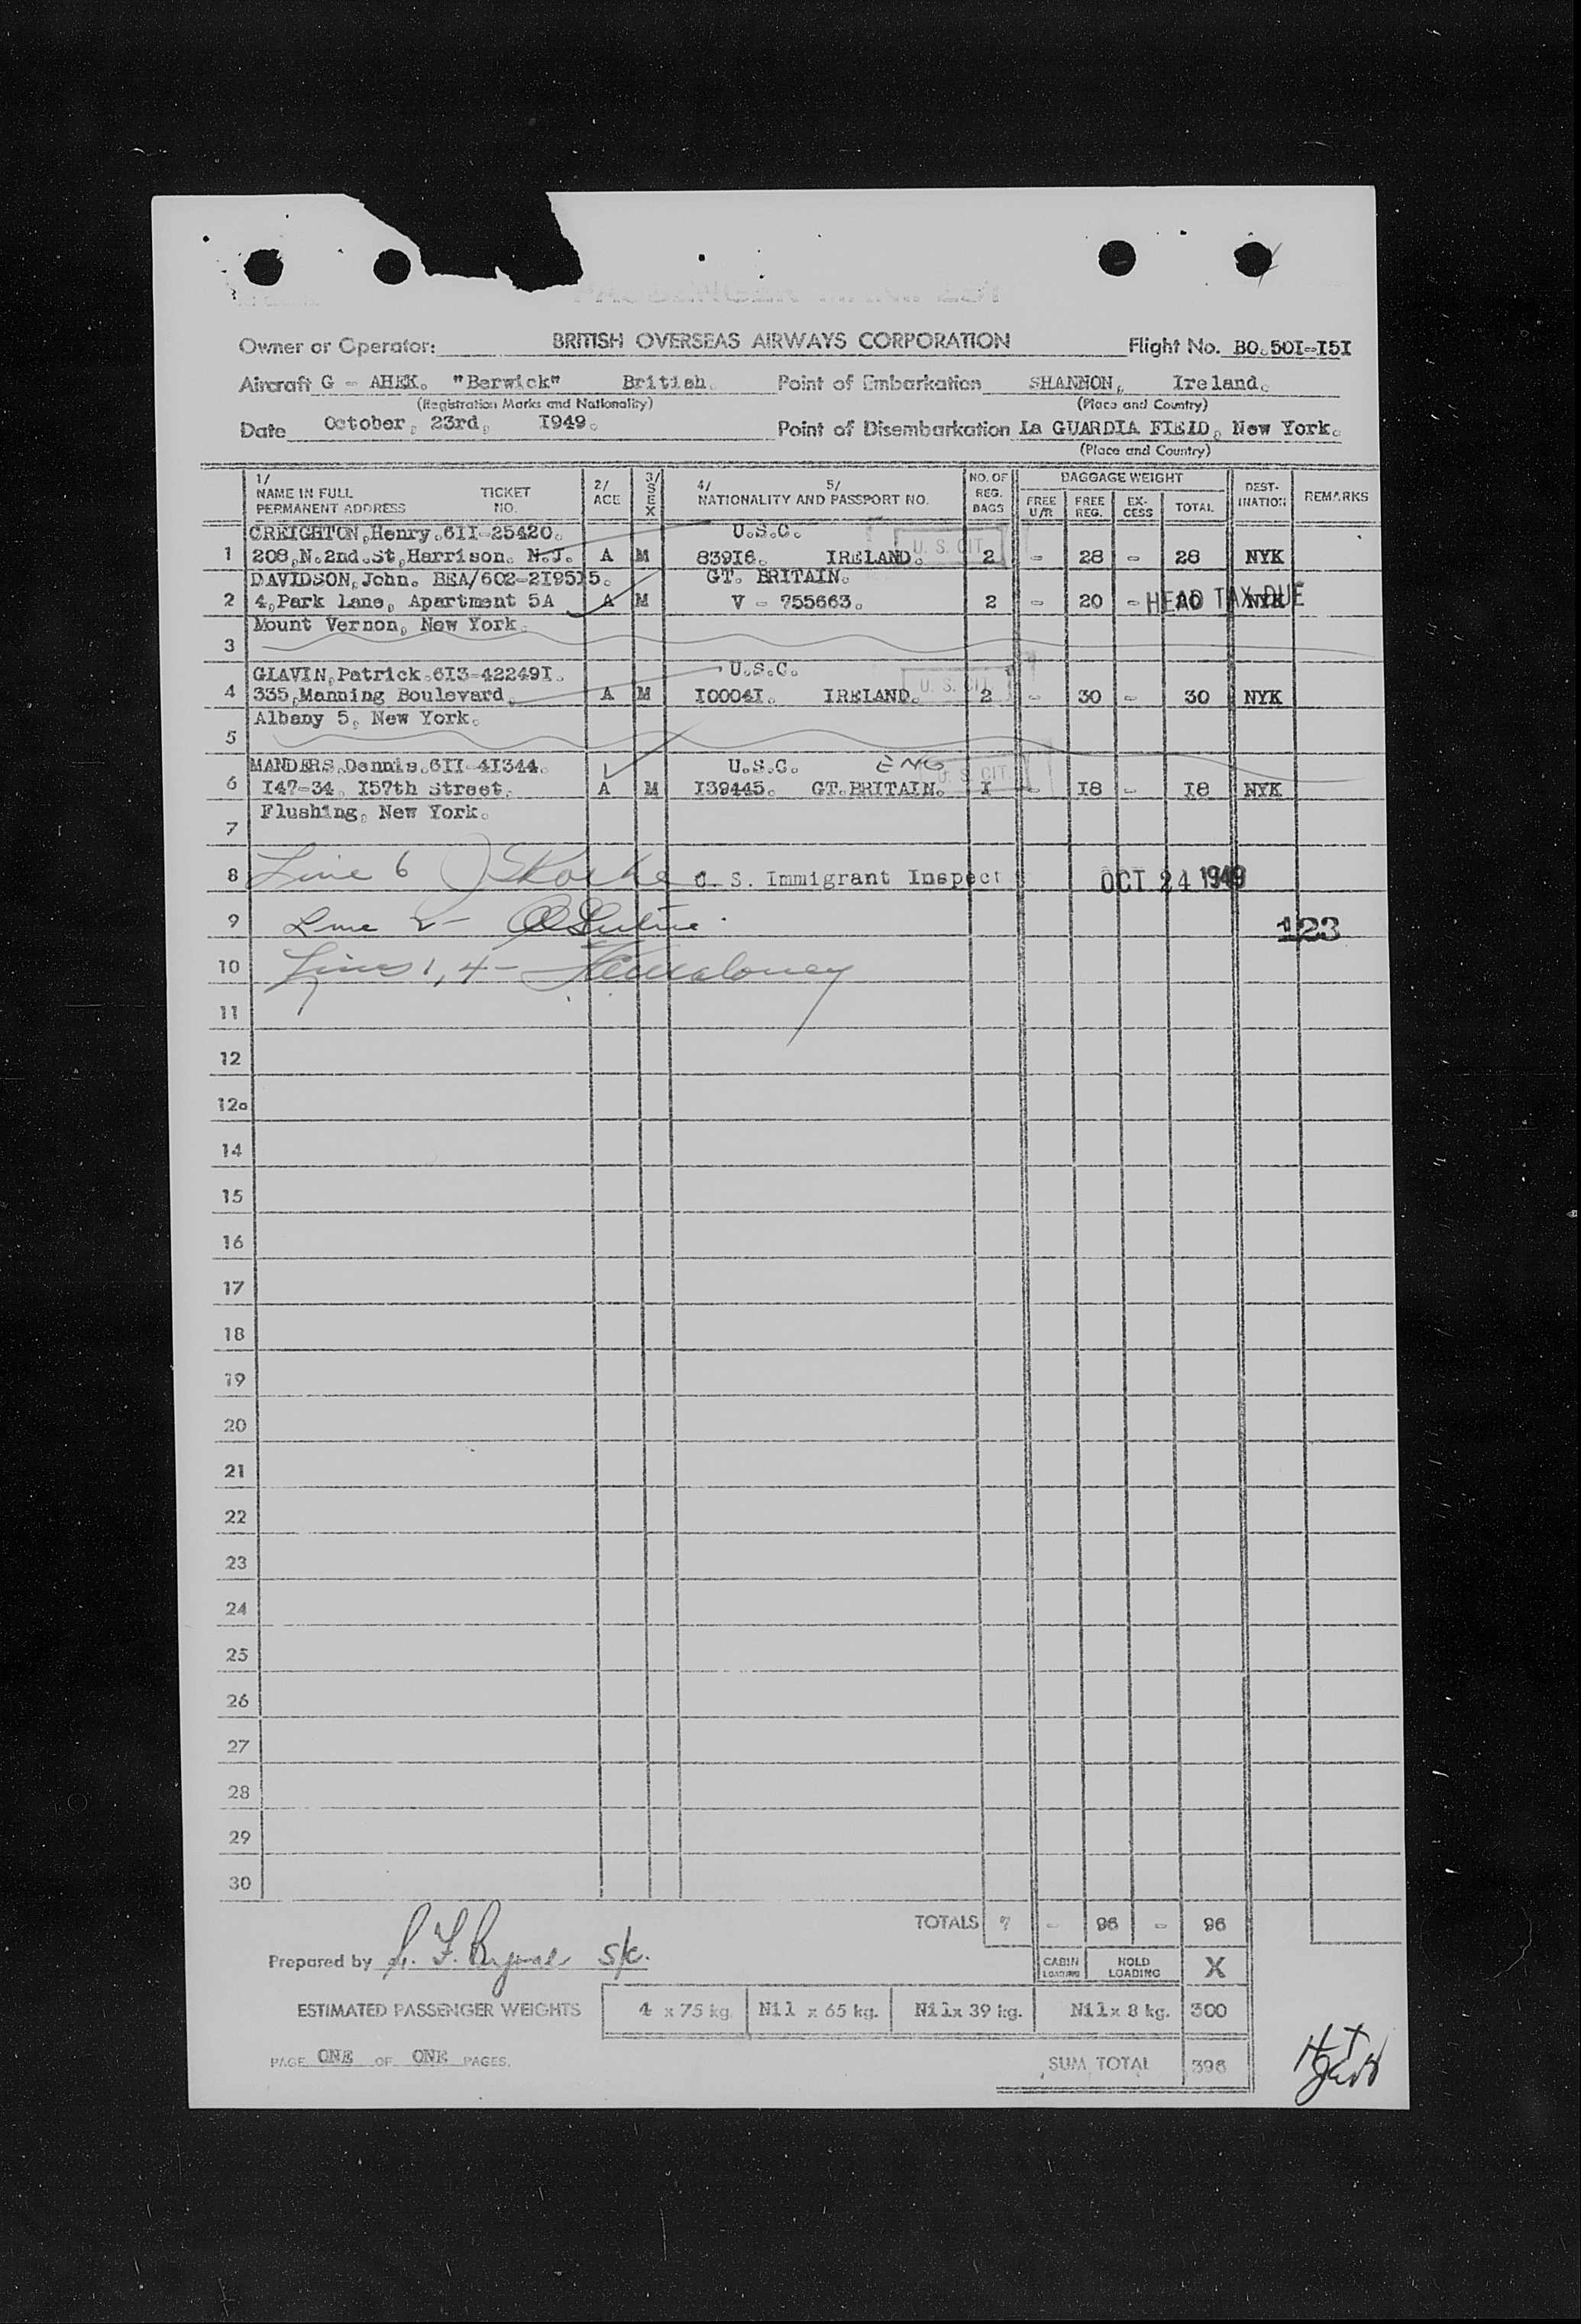 PASSENGER MANIFEST
Owner or Operator: BRITISH OVERSEAS AIRWAYS CORPORATION Flight No. BO.50I-I5I
Aircraft G - AHEK. "Berwick" British. Point of Embarkation SHANNON, Ireland.
(Registration Marks and Nationality) (Place and Country)
Date October, 23rd, I949. Point of Disembarkation La GUARDIA FIELD, New York.
(Place and Country)
1/ NAME IN FULL PERMANENT ADDRESS TICKET NO. 2/ AGE 3/ SEX 4/ 5/ NATIONALITY AND PASSPORT NO. NO. OF REG. BAGS BAGGAGE WEIGHT FREE U/R FREE REG. EX-CESS TOTAL DEST-INATION REMARKS
CREIGHTON,Henry.6II-25420. U.S.C.
1 208,N.2nd.St,Harrison. N.J. A M 839I6. IRELAND. U. S. CIT. 2 - 28 - 28 NYK
DAVIDSON,John. BEA/602-2I95I5. GT. BRITAIN.
2 4,Park Lane, Apartment 5A A M V - 755663. 2 - 20 - 20 NYK HEAD TAX DUE
Mount Vernon, New York.
3
GLAVIN,Patrick.6I3-42249I. U.S.C.
4 335,Manning Boulevard. A M I0004I. IRELAND. U. S. CIT. 2 - 30 - 30 NYK
Albany 5, New York.
5
MANDERS,Dennis.6II-4I344. U.S.C. ENG
6 I47-34, I57th Street. A M I39445. GT.BRITAIN. U. S. CIT. I - I8 - I8 NYK
Flushing, New York.
7
8 Line 6 U. S. Immigrant Inspect OCT 24 1949
9 Line 2- 123
10 Lines 1, 4-
11
12
12a
14
15
16
17
18
19
20
21
22
23
24
25
26
27
28
29
30
TOTALS 7 - 96 - 96
Prepared by s/c.
CABIN LOADING HOLD LOADING X
ESTIMATED PASSENGER WEIGHTS 4 x 75 kg. Nil x 65 kg. Nil x 39 kg. Nil x 8 kg. 300
PAGE ONE OF ONE PAGES. SUM TOTAL 396